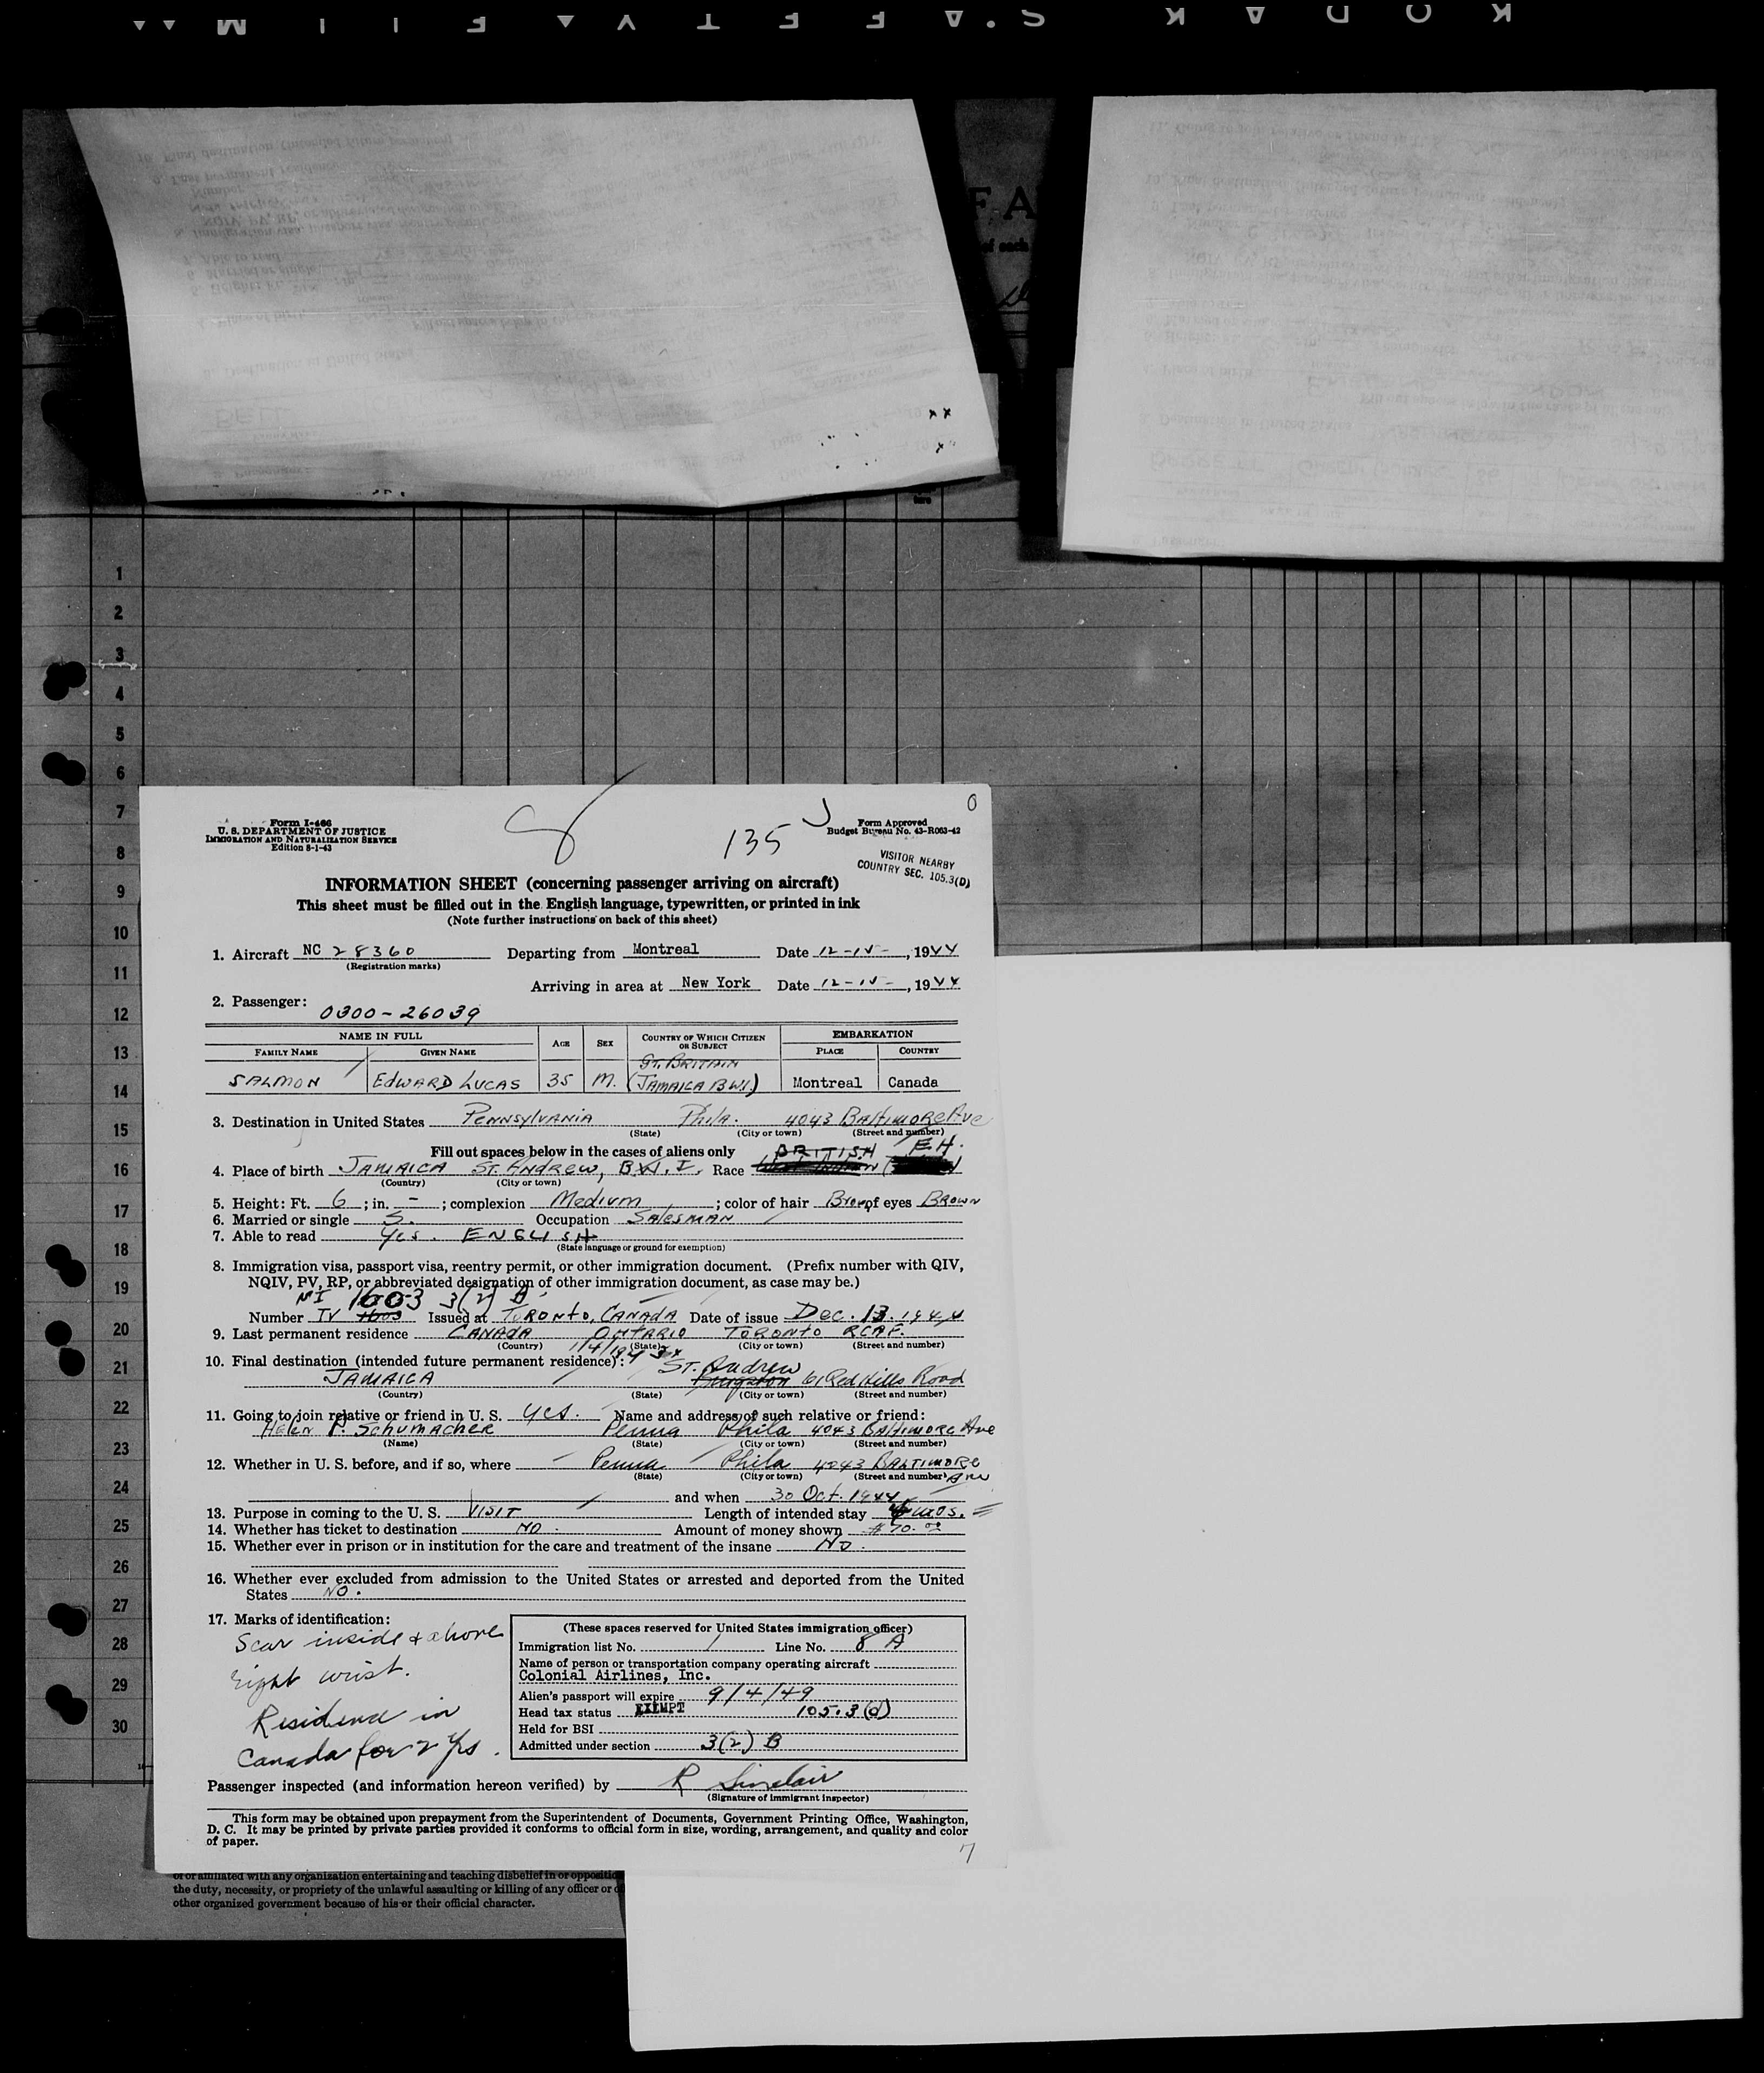 KODAK SAFETY FILM
1
2
3
4
5
6
7
8
9
10
11
12
13
14
15
16
17
18
19
20
21
22
23
24
25
26
27
28
29
30
8
135
0
Form I-466
U. S. DEPARTMENT OF JUSTICE
IMMIGRATION AND NATURALIZATION SERVICE
Edition 8-1-43
Form Approved
Budget Bureau No. 43-R063-42
VISITOR NEARBY
COUNTRY SEC. 105.3(D)
INFORMATION SHEET (concerning passenger arriving on aircraft)
This sheet must be filled out in the English language, typewritten, or printed in ink
(Note further instructions on back of this sheet)
1. Aircraft NC 28360 Departing from Montreal Date 12-15-, 1944
(Registration marks)
Arriving in area at New York Date 12-15-, 1944
2. Passenger:
0300-26039
NAME IN FULL AGE SEX COUNTRY OF WHICH CITIZEN OR SUBJECT EMBARKATION
FAMILY NAME GIVEN NAME PLACE COUNTRY
GT. BRITAIN
SALMON EDWARD LUCAS 35 M. (JAMAICA B.W.I.) Montreal Canada
3. Destination in United States PENNSYLVANIA Phila. 4043 BALTIMORE Ave
(State) (City or town) (Street and number)
Fill out spaces below in the cases of aliens only
BRITISH E.H.
4. Place of birth JAMAICA ST. ANDREW, B.W.I. Race
(Country) (City or town)
5. Height: Ft. 6; in. -; complexion Medium; color of hair Brown of eyes BROWN
6. Married or single S. Occupation SALESMAN
7. Able to read Yes. ENGLISH
(State language or ground for exemption)
8. Immigration visa, passport visa, reentry permit, or other immigration document. (Prefix number with QIV,
NQIV, PV, RP, or abbreviated designation of other immigration document, as case may be.)
NI 1603 3(2) B
Number TV 1603 Issued at TORONTO, CANADA Date of issue Dec. 13. 1944
9. Last permanent residence CANADA ONTARIO TORONTO RCAF.
(Country) (State) (City or town) (Street and number)
10. Final destination (intended future permanent residence):
ST. Andrew
JAMAICA Kingston 61 Red Hills Road
(Country) (State) (City or town) (Street and number)
11. Going to join relative or friend in U. S. yes. Name and address of such relative or friend:
Helen P. SCHUMACHER Penna Phila 4043 BALTIMORE Ave
(Name) (State) (City or town) (Street and number)
12. Whether in U. S. before, and if so, where Penna Phila 4043 BALTIMORE
(State) (City or town) (Street and number) Ave
and when 30 Oct. 1944
13. Purpose in coming to the U. S. VISIT Length of intended stay
14. Whether has ticket to destination NO. Amount of money shown $70.00
15. Whether ever in prison or in institution for the care and treatment of the insane NO.
16. Whether ever excluded from admission to the United States or arrested and deported from the United
States NO.
17. Marks of identification:
Scar inside & above
right wrist.
Residence in
Canada for 2 yrs.
(These spaces reserved for United States immigration officer)
Immigration list No. 1 Line No. 8 A
Name of person or transportation company operating aircraft
Colonial Airlines, Inc.
Alien's passport will expire 9/4/49
Head tax status EXEMPT 105.3(d)
Held for BSI
Admitted under section 3(2) B
Passenger inspected (and information hereon verified) by R Sinclair
(Signature of immigrant inspector)
This form may be obtained upon prepayment from the Superintendent of Documents, Government Printing Office, Washington,
D. C. It may be printed by private parties provided it conforms to official form in size, wording, arrangement, and quality and color
of paper.
or or affiliated with any organization entertaining and teaching disbelief in or
the duty, necessity, or propriety of the unlawful assaulting or killing of any officer or
other organized government because of his or their official character.